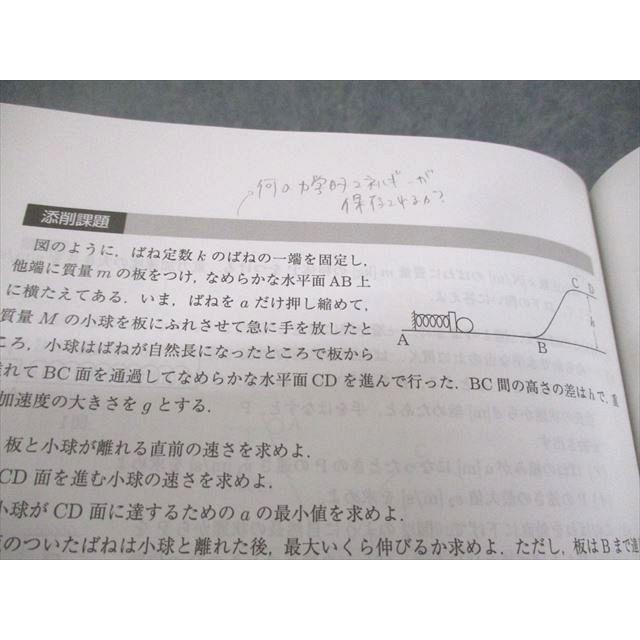 何の力学的エネルギーが
保存されるか?
添削課題
図のように，ばね定数kのばねの一端を固定し，
他端に質量mの板をつけ，なめらかな水平面AB上
に横たえてある．いま，ばねをaだけ押し縮めて，
質量Mの小球を板にふれさせて急に手を放したと
ころ，小球はばねが自然長になったところで板から
れてBC面を通過してなめらかな水平面CDを進んで行った．BC間の高さの差はhで，重
加速度の大きさをgとする．
A
B
C D
h
板と小球が離れる直前の速さを求めよ．
CD面を進む小球の速さを求めよ．
小球がCD面に達するためのaの最小値を求めよ．
のついたばねは小球と離れた後，最大いくら伸びるか求めよ．ただし，板はBまで達